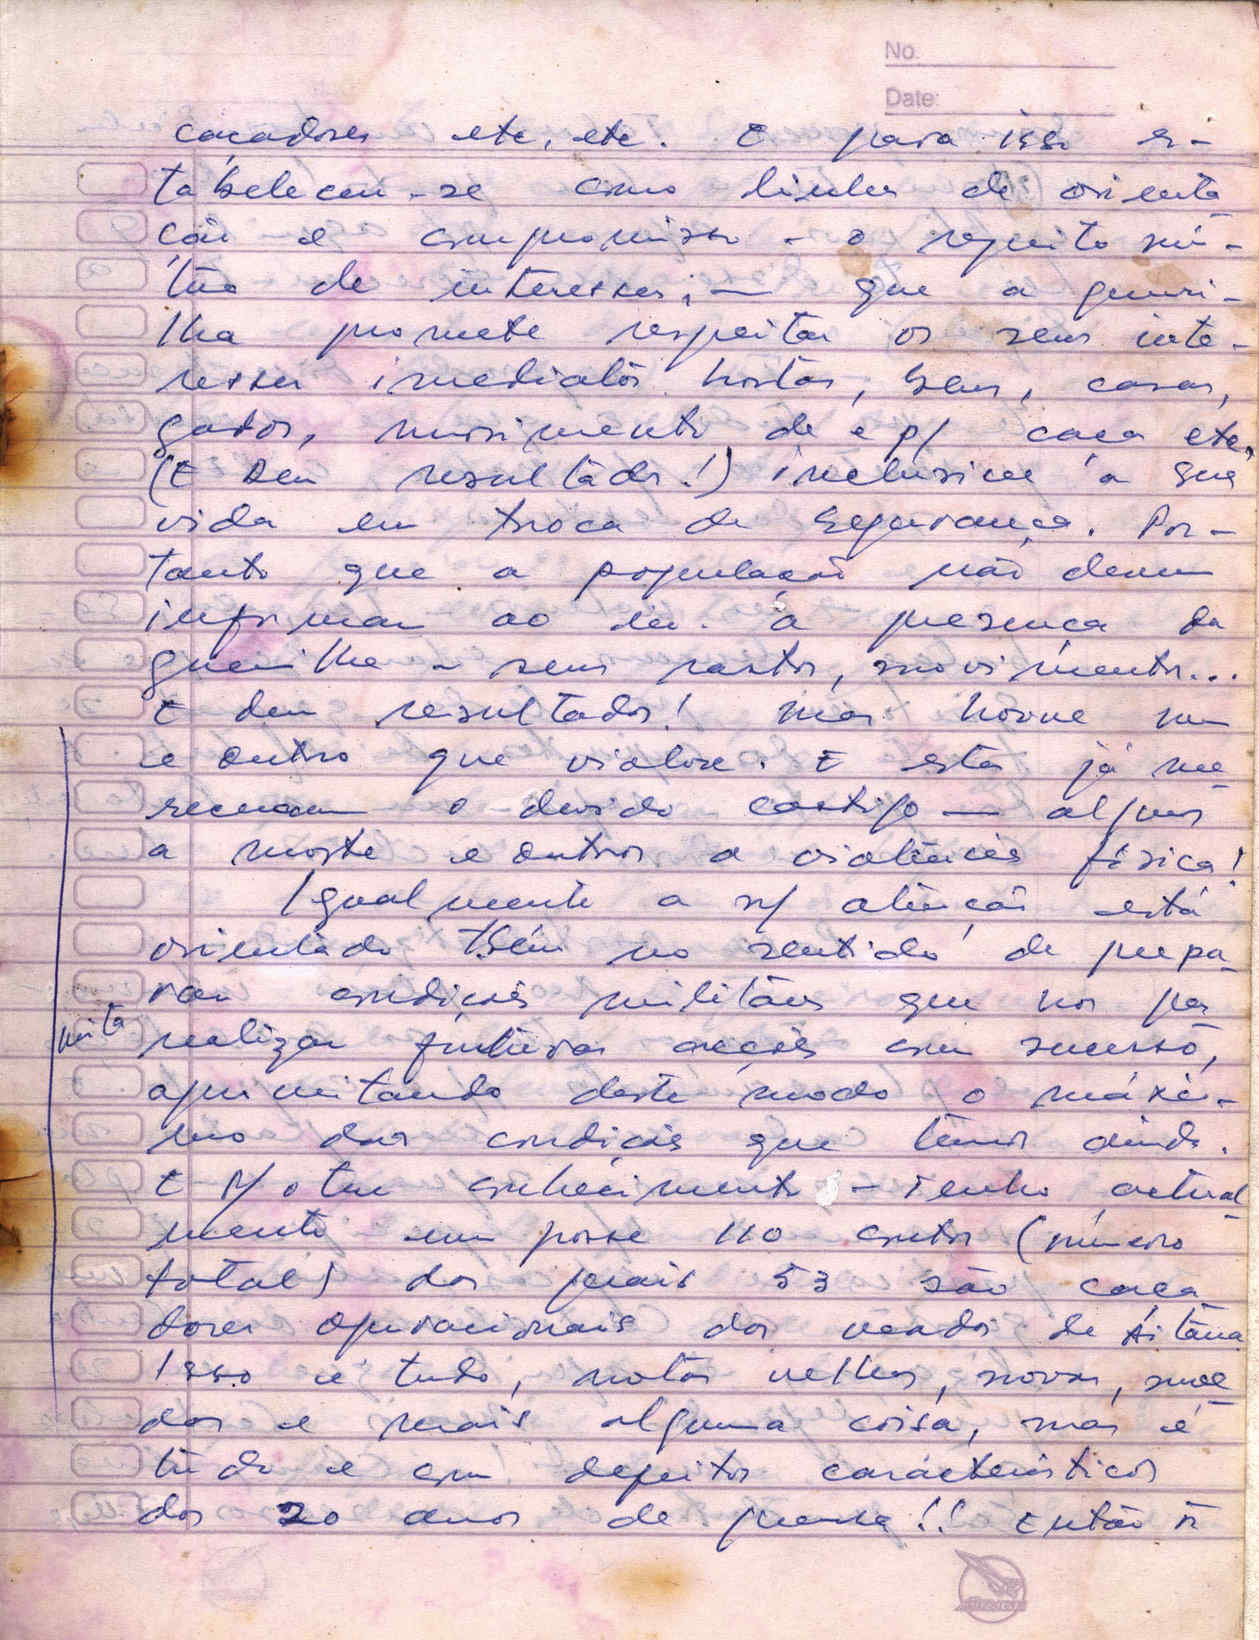 No.
Date:
caçadores etc, etc. E para isso es-
tabeleceu-se como linha de orienta
ção e compromisso - o respeito mú-
tuo de interesses; — que a guerri-
lha promete respeitar os seus inte-
resses imediatos hortas, bens, casas,
gados, movimento de e p/ caça etc,
(E deu resultado!) inclusive a sua
vida em troca de segurança. Por-
tanto que a população não devem
informar ao ini. a presença da
guerrilha - seus rastos, movimentos...
E deu resultados! mas houve um
e outro que violou. E estes já me
receram o devido castigo — alguns
a morte e outros a violência física!
Igualmente a n/ atenção está
orientado tbém no sentido de prepa-
rar condições militares que nos per
mita
realizar futuras acções com sucesso,
aproveitando deste modo o máxi-
mo das condições que temos ainda.
E p/ o teu conhecimento - Tenho actual
mente em posse 110 contos (número
total) dos quais 53 são caça
dores operacionais dos veados de Aitana
Isso é tudo, notas velhas, novas, moe
das e mais alguma coisa, mas é
tudo e com defeitos característicos
dos 20 anos de guerra!! Então ñ